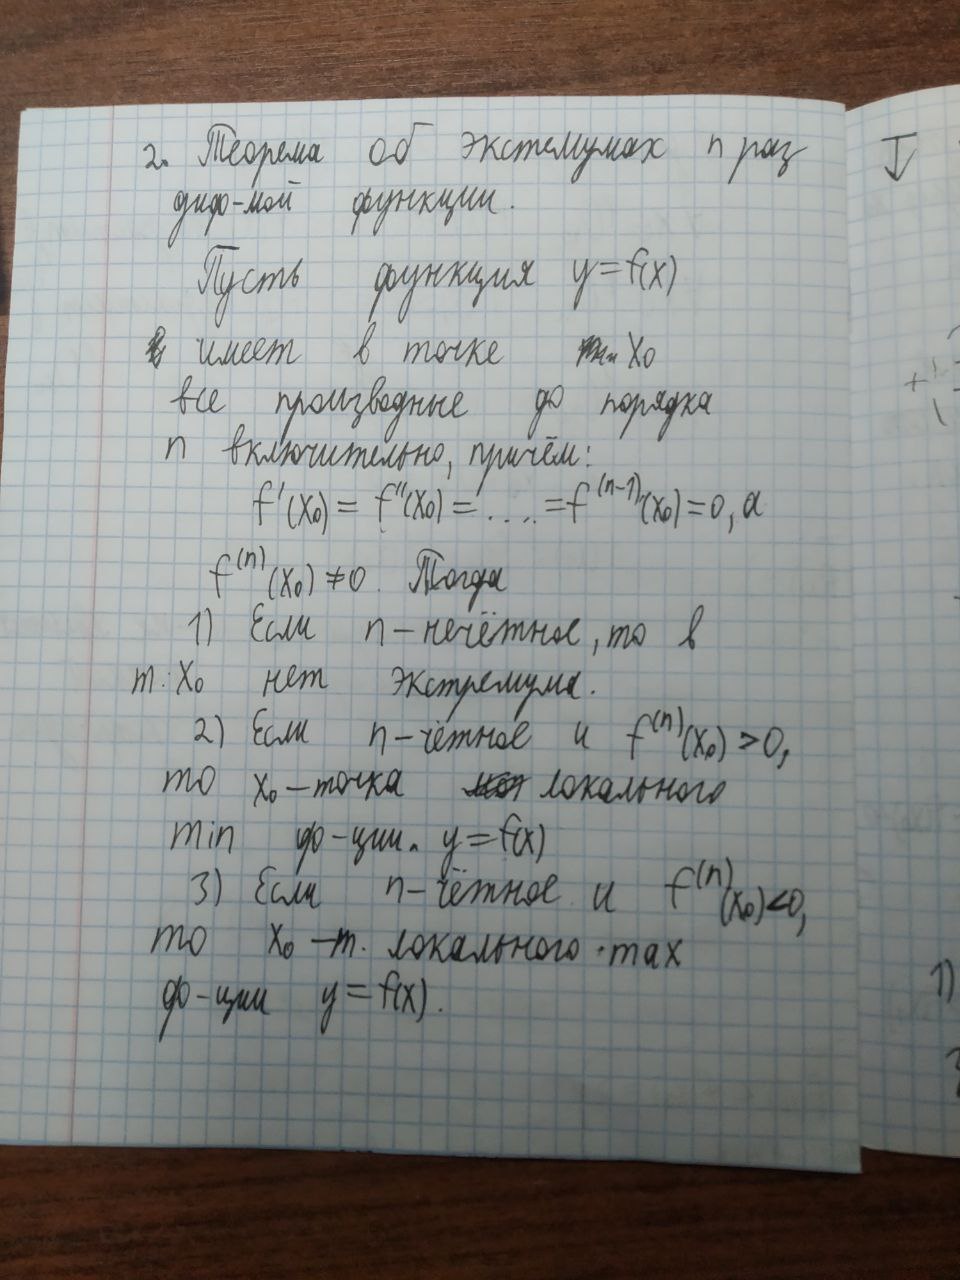 2. Теорема об экстемумах n раз
диф-мой функции.
Пусть функция y=f(x)
имеет в точке x₀
все производные до порядка
n включительно, причём:
f'(x₀) = f''(x₀) = .... = f⁽ⁿ⁻¹⁾(x₀) = 0, а
f⁽ⁿ⁾(x₀) ≠ 0. Тогда
1) Если n – нечётное, то в
т. x₀ нет экстремума.
2) Если n – чётное и f⁽ⁿ⁾(x₀) > 0,
то x₀ – точка локального
min ф-ции. y = f(x)
3) Если n – чётное и f⁽ⁿ⁾(x₀) < 0,
то x₀ – т. локального max
ф-ции y = f(x).
1)